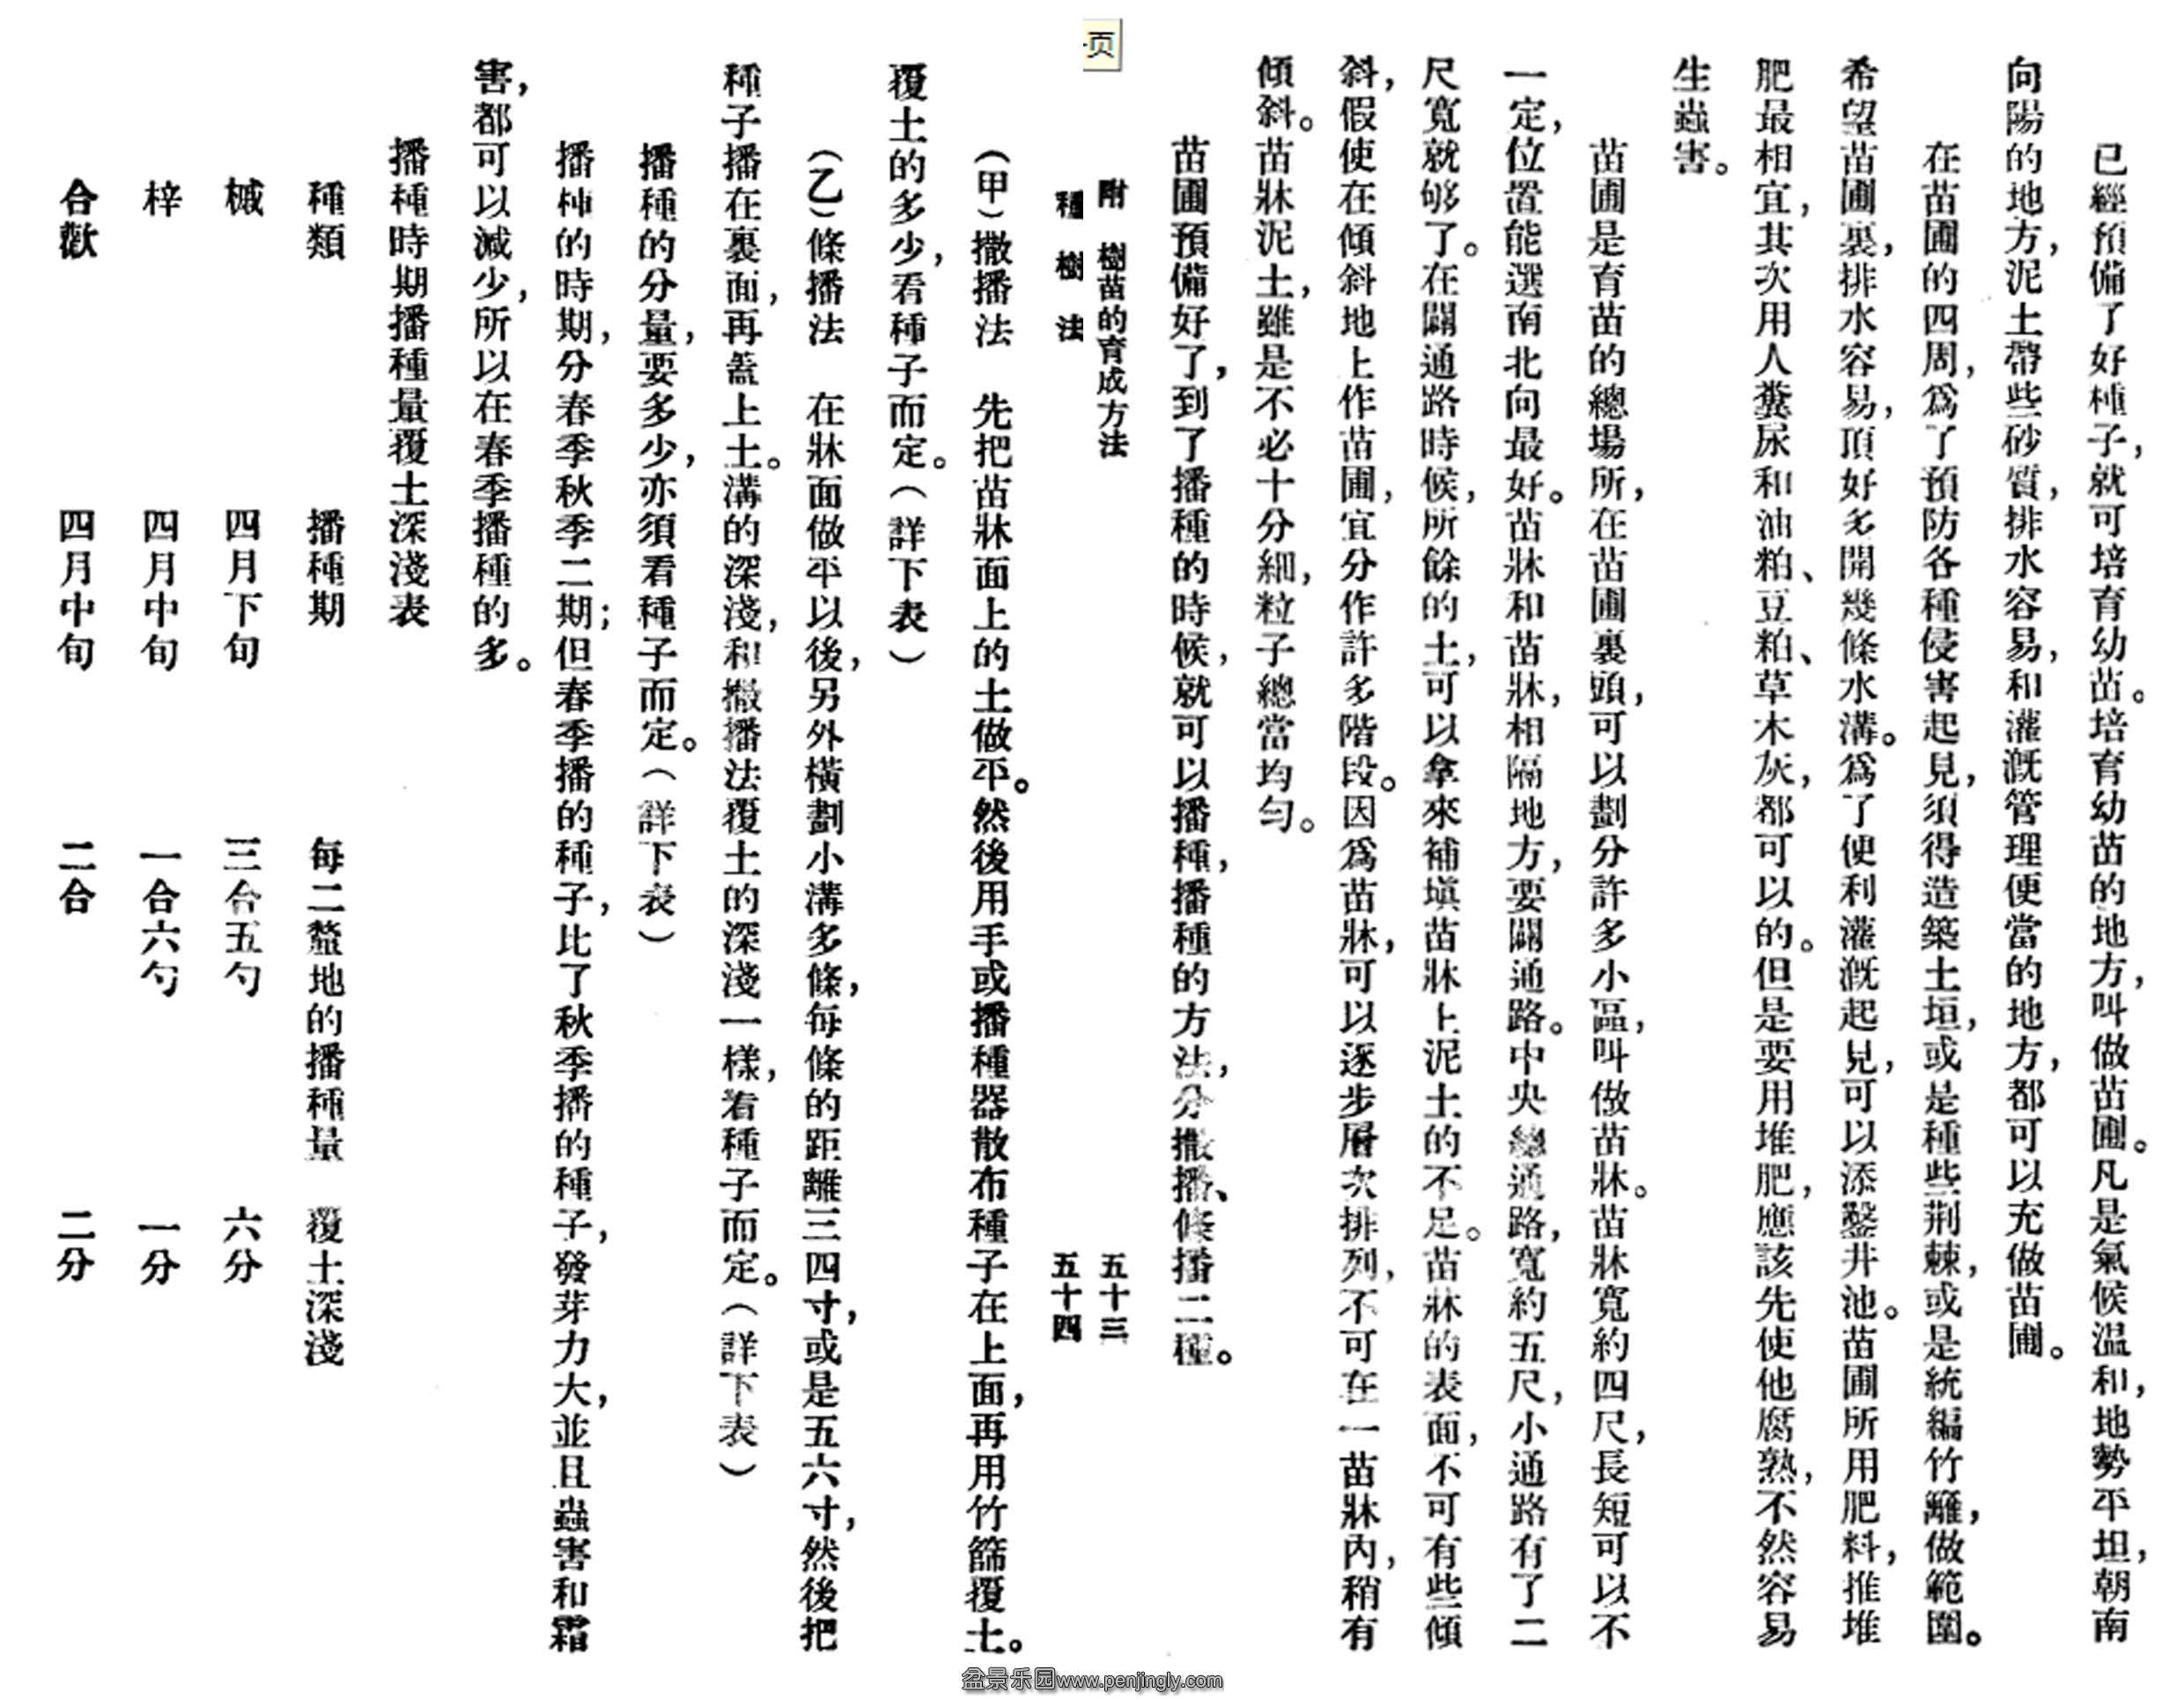 已經預備了好種子，就可培育幼苗。培育幼苗的地方，叫做苗圃。凡是氣候温和，地勢平坦，朝南
向陽的地方，泥土帶些砂質，排水容易，和灌漑管理便當的地方，都可以充做苗圃。
在苗圃的四周，爲了預防各種侵害起見，須得造築土垣，或是種些荆棘，或是統編竹籬，做範圍。
希望苗圃裏，排水容易，頂好多開幾條水溝。爲了便利灌漑起見，可以添鑿井池。苗圃所用肥料，推堆
肥最相宜，其次用人糞尿和油粕、豆粕、草木灰，都可以的。但是要用堆肥，應該先使他腐熟，不然容易
生蟲害。
苗圃是育苗的總場所，在苗圃裏頭，可以劃分許多小區，叫做苗牀。苗牀寬約四尺，長短可以不
一定，位置能選南北向最好。苗牀和苗牀，相隔地方，要闢通路。中央總通路，寬約五尺，小通路有了二
尺寬就够了。在闢通路時候，所餘的土，可以拿來補塡苗牀上泥土的不足。苗牀的表面，不可有些傾
斜，假使在傾斜地上作苗圃，宜分作許多階段。因爲苗牀，可以逐步層次排列，不可在一苗牀內，稍有
傾斜。苗牀泥土，雖是不必十分細，粒子總當均勻。
苗圃預備好了，到了播種的時候，就可以播種，播種的方法，分撒播、條播二種。
页
附　樹苗的育成方法　五十三
種樹法　五十四
（甲）撒播法　先把苗牀面上的土做平。然後用手或播種器散布種子在上面，再用竹篩覆土。
覆土的多少，看種子而定。（詳下表）
（乙）條播法　在牀面做平以後，另外橫劃小溝多條，每條的距離三四寸，或是五六寸，然後把
種子播在裏面，再蓋上土。溝的深淺，和撒播法覆土的深淺一樣，看種子而定。（詳下表）
播種的分量，要多少，亦須看種子而定。（詳下表）
播種的時期，分春季秋季二期；但春季播的種子，比了秋季播的種子，發芽力大，並且蟲害和霜
害，都可以減少，所以在春季播種的多。
播種時期播種量覆土深淺表
種類　播種期　每二釐地的播種量　覆土深淺
槭　四月下旬　三合五勺　六分
梓　四月中旬　一合六勺　一分
合歡　四月中旬　二合　二分
盆景乐园www.penjingly.com